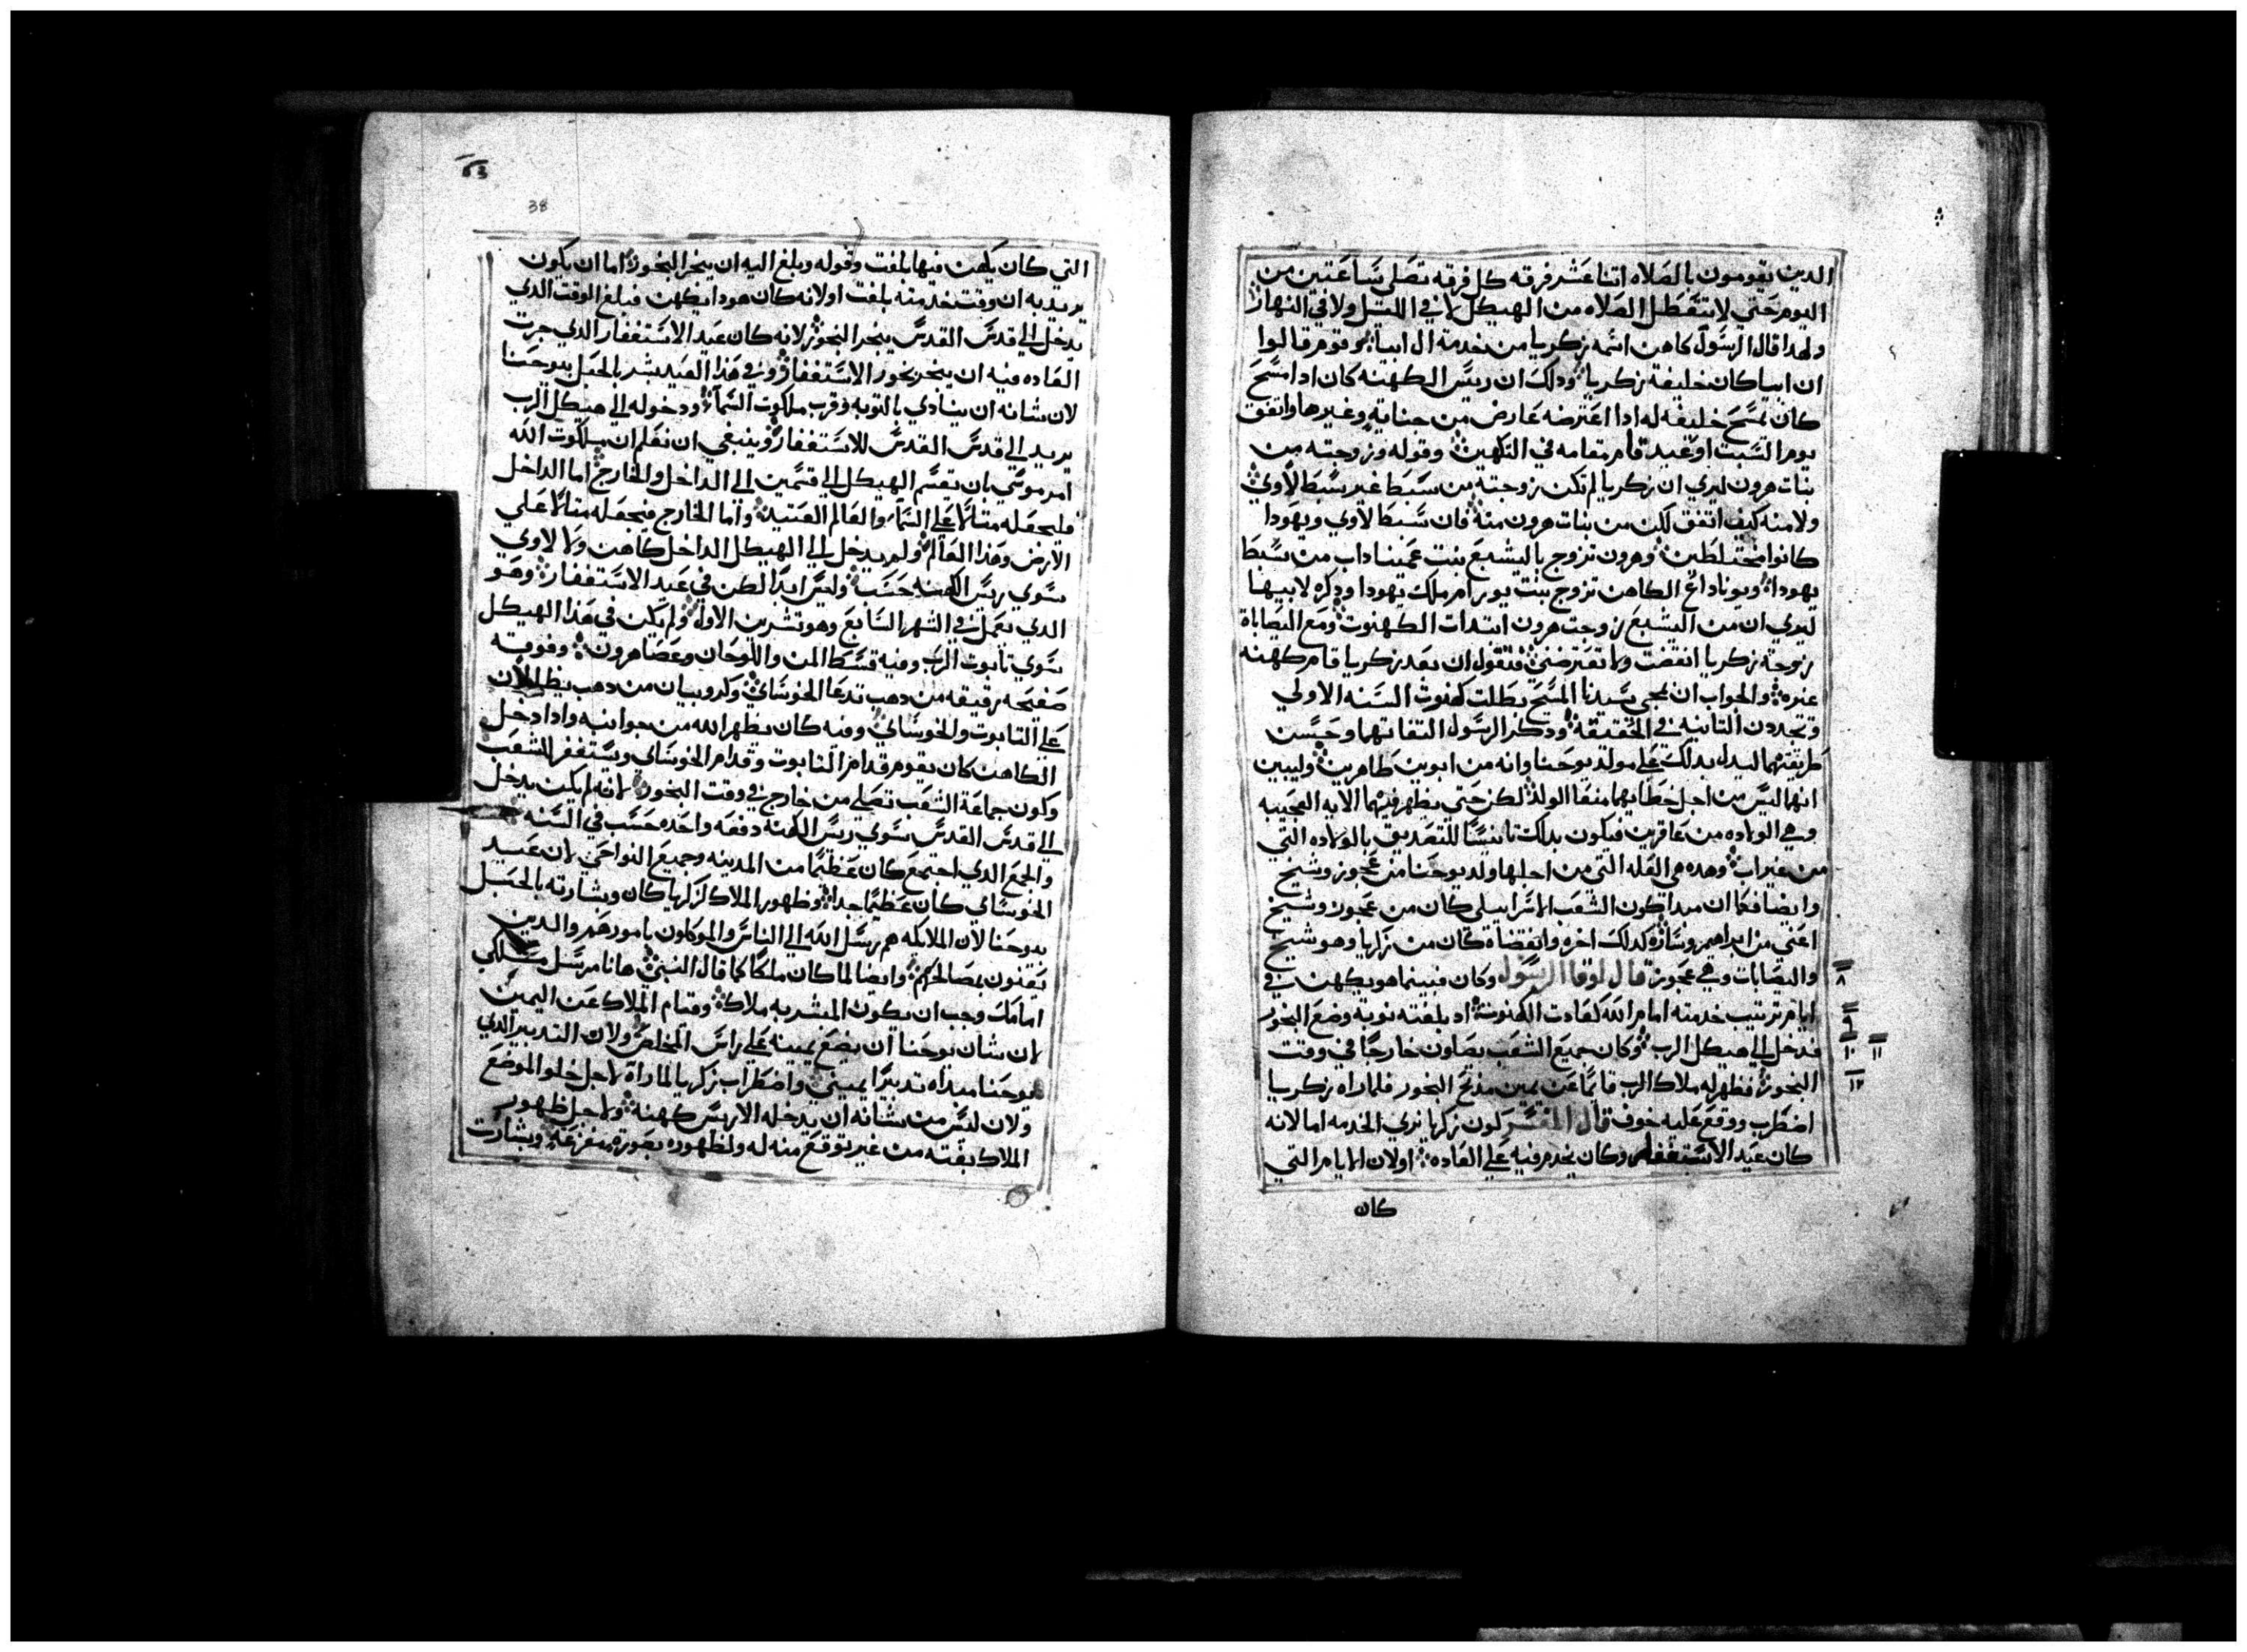 الدين يقومون بالصلاه اتنا عشر فرقه كل فرقه تصلي ساعتين من
اليوم حتي لا تتعطل الصلاه من الهيكل لا في الليل ولا في النهار
ولهدا قال الرسول كاهن اسمه زكريا من خدمة ال ابيا وقوم قالوا
ان ابيا كان خليفة زكريا ودلك ان ريس الكهنه كان ادا مسح
كان يمسح خليفه له ادا اعترضه عارض من جنابة وغيرها واتفق
يوم السبت او عيد قام مقامه في التكهين وقوله وزوجته من
بنات هرون ليري ان زكريا لم تكن زوجته من سبط غير سبط لاوي
ولا منه كيف اتفق لكن من بنات هرون منه فان سبط لاوي ويهودا
كانوا مختلطين وهرون تزوج باليشبع بنت عميناداب من سبط
يهودا ويوناداع الكاهن تزوج بنت يورام ملك يهودا ودكره لابيها
ليري ان من اليشبع زوجت هرون ابتدات الكهنوت ومع اليصاباة
زوجة زكريا انقضت ولا تعترضني فتقول ان بعد زكريا قام كهنه
غيره والجواب ان بمجي سيدنا المسيح بطلت كهنوت السنه الاولي
وتجددت التانيه في الحقيقة ودكر الرسول التقاتهما وحسن
طريقتهما ليدل بدلك علي مولد يوحنا وانه من ابوين طاهرين وليبين
انهما ليس من اجل خطاياهما منعا الولد لكن حتي يظهر فيهما الايه العجيبه
وهي الولاده من عاقرين فيكون بدلك تانيسا للتصديق بالولاده التي
من غير اب وهده هي العله التي من اجلها ولد يوحنا من عجوز وشيخ
وايضا فكما ان مبدا كون الشعب الاسراييلي كان من عجوز وشيخ
اعني من ابراهيم وساره كدلك اخره وانقضاه كان من زكريا وهو شيخ
واليصابات وهي عجوز قال لوقا الرسول وكان فبينما هو يكهن في
٨
ايام ترتيب خدمته امام الله كعادت الكهنوت اد بلغته نوبة وضع البخور
٩
فدخل الي هيكل الرب وكان جميع الشعب يصلون خارجا في وقت
١٠ ١١
البخور فظهر له ملاك الرب قايما عن يمين مدبح البخور فلما راه زكريا
١٢
اضطرب ووقع عليه خوف قال المفسر لكون زكريا نري الخدمه اما لانه
كان عيد الاستغفار وكان يخدم فيه علي العاده اولان الايام التي
كان
38
التي كان يكهن فيها بلغت وقوله وبلغ اليه ان يبخر البخور اما ان يكون
يريد به ان وقت خدمته بلغت اولانه كان هودا يكهن فبلغ الوقت الدي
يدخل الي قدس القدس يبخر البخور لانه كان عيد الاستغفار الدي جرت
العاده فيه ان يبخر بخور الاستغفار وفي هدا العيد بشر بالحبل بيوحنا
لان شانه ان ينادي بالتوبه وقرب ملكوت السماء ودخوله الي هيكل الرب
يريد الي قدس القدس للاستغفار وينبغي ان تعلم ان ملكوت الله
امر موسي بان يقسم الهيكل الي قسمين الي الداخل والخارج اما الداخل
فليجعله متالا علي السماء والعالم العتيد واما الخارج فيجعله متالا علي
الارض وهدا العالم ولم يدخل الي الهيكل الداخل كاهن ولا لاوي
سوي ريس الكهنه حسب وليس ابدا لكن في عيد الاستغفار وهو
الدي يعمل في الشهر السابع وهو تشرين الاول ولم يكن في هدا الهيكل
سوي تابوت الرب وفيه قسط المن واللوحان وعصا هرون وفوقه
صفيحه رقيقه من دهب تدعا الحوساي وكاروبيان من دهب يظللان
علي التابوت والحوساي ومنه كان يظهر الله من جوانبه وادا دخل
الكاهن كان يقوم قدام التابوت وقدام الحوساي ويستغفر للشعب
وكون جماعة الشعب تصلي من خارج في وقت البخور لانه لم يكن يدخل
الي قدس القدس سوي ريس الكهنه دفعه واحده حسب في السنه
والجمع الدي اجتمع كان عظيما من المدينه وجميع النواحي لان عيد
الحوساي كان عظيما جدا وظهور الملاك لزكريا كان وبشارته بالحبل
بيوحنا لان الملايكه هم رسل الله الي الناس والموكلون بامورهم والدين
يعنون بمصالحهم وايضا لما كان ملكا كما قال النبي هانا مرسل ملاكي
امامك وجب ان يكون المبشر به ملاك وقيام الملاك عن اليمين
لان شان يوحنا ان يضع يمينه علي راس المخلص ولان التدبير الدي
يوحنا مبداه تدبيرا يميني واضطراب زكريا لما راه لاجل خلو الموضع
ولان ليس من شانه ان يدخله الا ريس كهنه ولاجل ظهور
الملاك بغته من غير توقع منه له ولظهوره بصورة مفزعه وبشارت